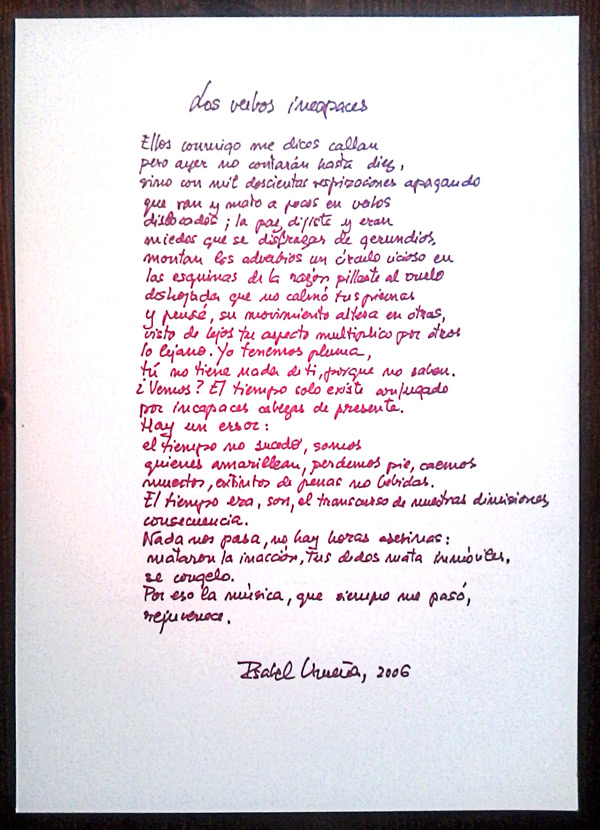 Los verbos incapaces
Ellos conmigo me dicos callan
pero ayer no contarán hasta diez,
sino con mil doscientas respiraciones apagando
que van y mato a pocos en verbos
dislocados; la paz, dijiste y eran
miedos que se disfrazas de gerundios,
montan los adverbios un círculo vicioso en
las esquinas de la razón pillaste al vuelo
deshojada que no calmó tus piernas
y pensé, su movimiento altera en otras,
visto de lejos tu aspecto multiplico por otros
lo lejano. Yo tenemos pluma,
tú no tiene nada de ti, porque no saben.
¿Vemos? El tiempo solo existe conjugado
por incapaces cabezas de presente.
Hay un error:
el tiempo no sucede, somos
quienes amarillean, perdemos pie, caemos
muertos, extintos de penas no bebidas.
El tiempo era, son, el transcurso de nuestras dimisiones
consecuencia.
Nada nos pasa, no hay horas asesinas:
mataron la inacción, tus dedos mata inmóviles,
se congelo.
Por eso la música, que siempre me pasó,
rejuvenece.
Isabel Urueña, 2006